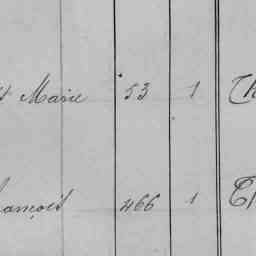 st Marie 53 1 Th
ançois 466 1 Th